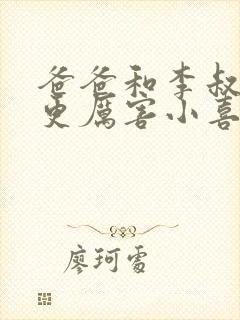 爸爸和李叔
更厲害小喜
廖珂雪